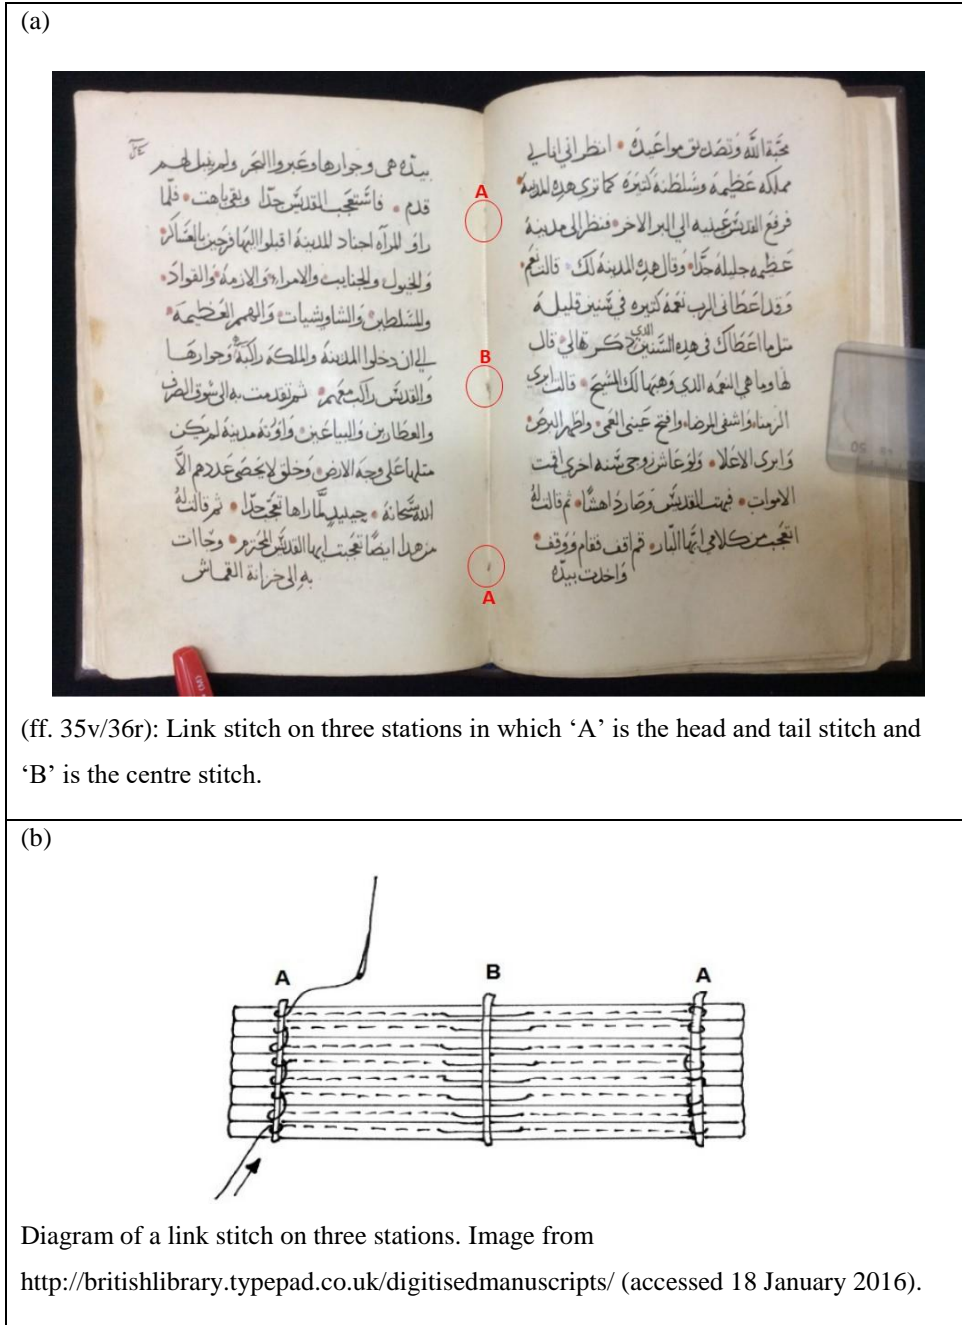 (a)
محبة الله وتصديق مواعيده • انظر اني انا
مملكه عظيمه وسلطنة كتيره كما تري هده المدينة
فرفع القديس عينيه الي البر الاخر • فنظر الى مدينة
عظيمه جليله جدا • وقال هده المدينة لك • قالت نعم •
وقد اعطاني الرب نعمة كتيره في سنين قليله
متل ما اعطاك في هده السنين الدي دكرتها لي • قال
لها وما هي النعمه الدي وهبها لك المسيح • قالت ابري
الزمنا • واشفي المرضا • وافتح عيني العمي • واطهر البرص •
وابري الاعلا • ولو عاش زوجي سنه اخري اقمت
الاموات • فبهت القديس وصار داهشا • تم قالت له
اتعجب من كلامي ايها البار • قم اقف فقام ووقف •
واخدت بيده
بيده هي وجوارها وعبروا البحر ولم يبتل لهم
قدم • فاستعجب القديس جدا وبقي باهت • فلما
راو المراه اجناد المدينة اقبلوا اليها فرحين بالعساكر •
والخيول والجنايب والامراء • والازمة • والقواد •
والسلطين • والشاويشيات • والهمم العظيمة •
الي ان دخلوا المدينة والملكة راكبة وجوارها
والقديس راكب معهم • تم تقدمت به الى سوق الصرف
والعطارين • والبياعين • مدينة لم يكن
متلها على وجه الارض • وخلق لا يحصى عددهم الا
الله سبحانه • حينيد لما راها تعجب جدا • تم قالت له
من هدا ايضا تعجبت ايها القديس المحترم • وجاات
به الى خزانة القماش
A
B
A
(ff. 35v/36r): Link stitch on three stations in which ‘A’ is the head and tail stitch and
‘B’ is the centre stitch.
(b)
A B A
Diagram of a link stitch on three stations. Image from
http://britishlibrary.typepad.co.uk/digitisedmanuscripts/ (accessed 18 January 2016).